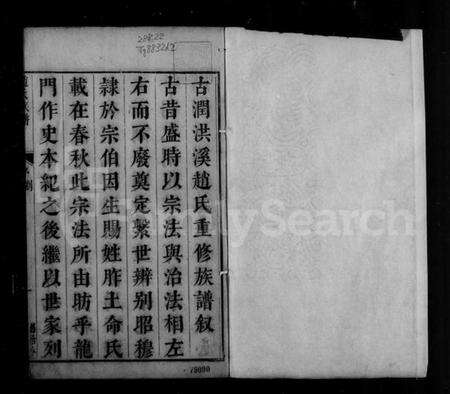 古潤洪溪趙氏重修族譜叙
古昔盛時以宗法與治法相左
右而不廢奠定繫世辨别昭穆
隷於宗伯因生賜姓胙土命氏
載在春秋此宗法所由昉乎龍
門作史本紀之後繼以世家列
FamilySearch